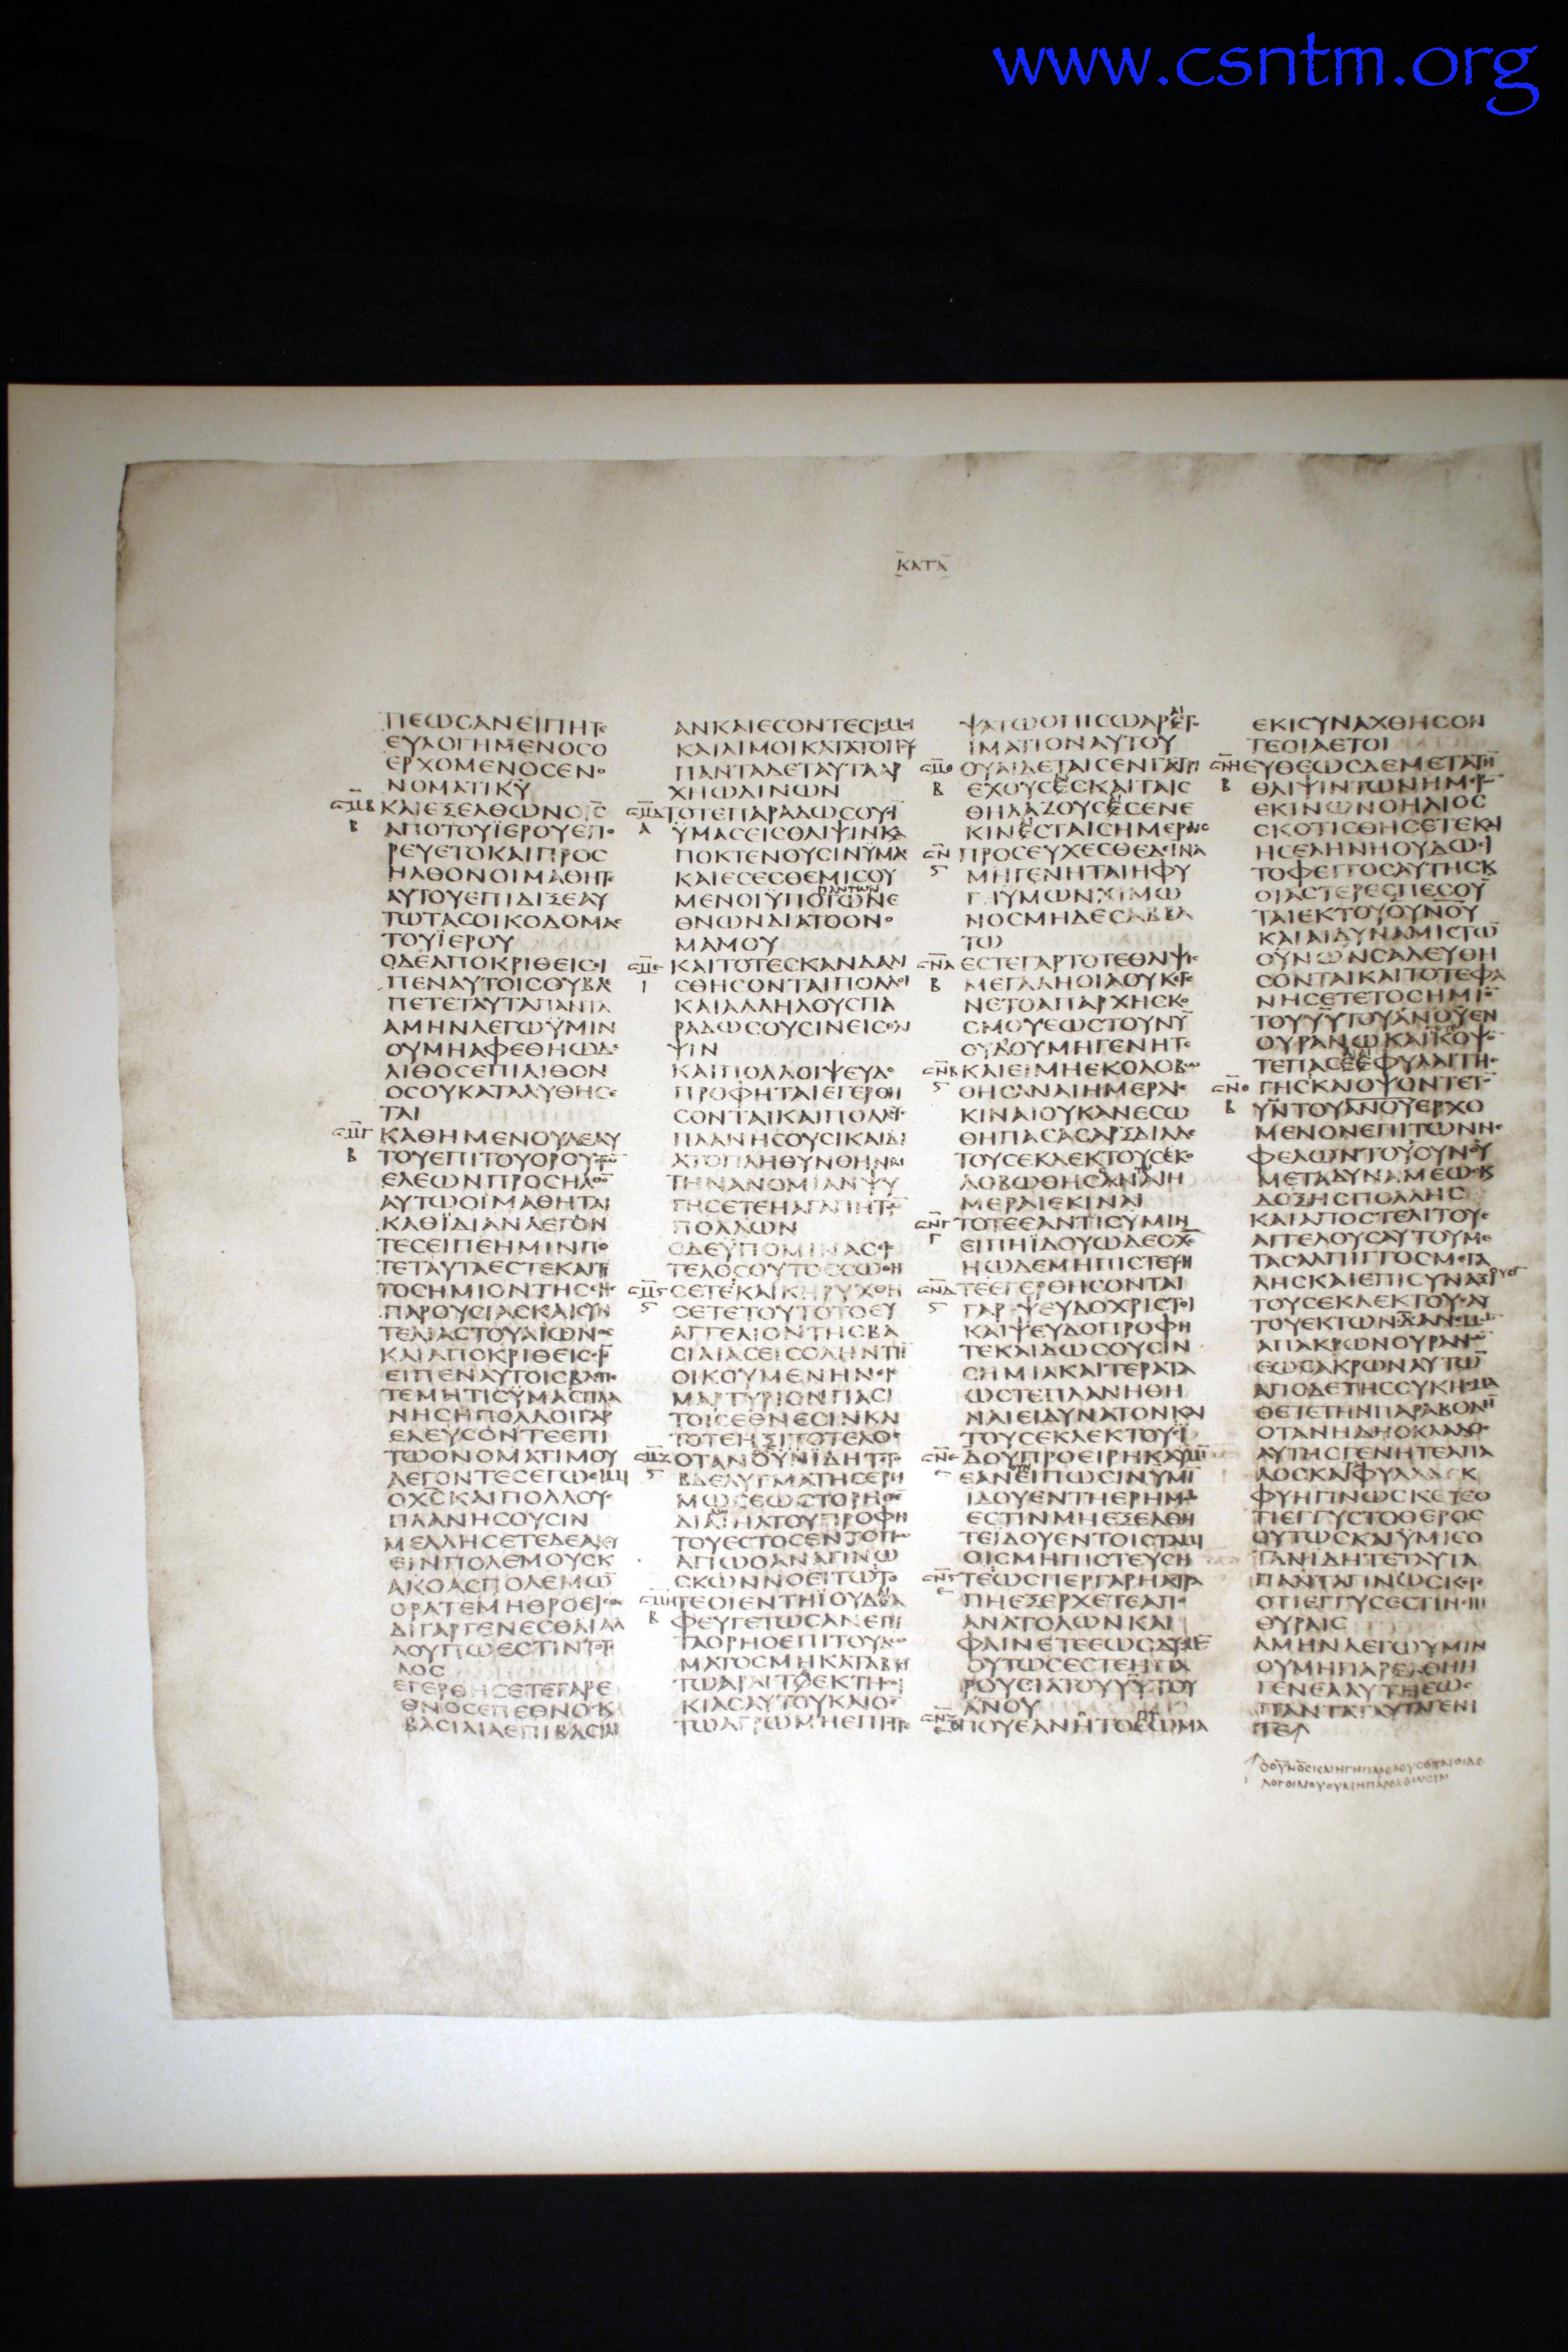 www.csntm.org
ΚΑΤΑ
ΕΥΛΟΓΗΜΕΝΟϹΟ
ΕΡΧΟΜΕΝΟϹΕΝΟ
ΝΟΜΑΤΙΚΥ
ΚΑΙΕΞΕΛΘΩΝΟΙϹ
ΑΠΟΤΟΥΪΕΡΟΥΕΠΟ
ΡΕΥΕΤΟΚΑΙΠΡΟϹ
ΗΛΘΟΝΟΙΜΑΘΗΤΕ
ΑΥΤΟΥΕΠΙΔΙΞΕΑΥ
ΤΩΤΑϹΟΙΚΟΔΟΜΑϹ
ΤΟΥΪΕΡΟΥ
ΟΔΕΑΠΟΚΡΙΘΕΙϹΙ
ΠΕΝΑΥΤΟΙϹΟΥΒΛΕ
ΠΕΤΕΤΑΥΤΑΠΑΝΤΑ
ΑΜΗΝΛΕΓΩΫΜΙΝ
ΟΥΜΗΑΦΕΘΗΩΔΕ
ΛΙΘΟϹΕΠΙΛΙΘΟΝ
ΟϹΟΥΚΑΤΑΛΥΘΗϹΕ
ΤΑΙ
ΚΑΘΗΜΕΝΟΥΔΕΑΥ
ΤΟΥΕΠΙΤΟΥΟΡΟΥϹΤΩ
ΕΛΕΩΝΠΡΟϹΗΛΘΟΝ
ΑΥΤΩΟΙΜΑΘΗΤΑΙ
ΚΑΘΪΔΙΑΝΛΕΓΟΝ
ΤΕϹΕΙΠΕΗΜΙΝΠΟ
ΤΕΤΑΥΤΑΕϹΤΕΚΑΙΤΙ
ΤΟϹΗΜΙΟΝΤΗϹϹΗϹ
ΠΑΡΟΥϹΙΑϹΚΑΙϹΥΝ
ΤΕΛΙΑϹΤΟΥΑΙΩΝΟϹ
ΚΑΙΑΠΟΚΡΙΘΕΙϹΟΙϹ
ΕΙΠΕΝΑΥΤΟΙϹΒΛΕΠΕ
ΤΕΜΗΤΙϹΫΜΑϹΠΛΑ
ΝΗϹΗΠΟΛΛΟΙΓΑΡ
ΕΛΕΥϹΟΝΤΕΕΠΙ
ΤΩΟΝΟΜΑΤΙΜΟΥ
ΛΕΓΟΝΤΕϹΕΓΩΕΙΜΙ
ΟΧϹΚΑΙΠΟΛΛΟΥϹ
ΠΛΑΝΗϹΟΥϹΙΝ
ΜΕΛΛΗϹΕΤΕΔΕΑΚΟΥ
ΕΙΝΠΟΛΕΜΟΥϹΚ
ΑΚΟΑϹΠΟΛΕΜΩ
ΟΡΑΤΕΜΗΘΡΟΕΙϹΘΕ
ΔΙΓΑΡΓΕΝΕϹΘΑΙΑΛΛ
ΛΟΥΠΩΕϹΤΙΝΤΟΤΕ
ΛΟϹ
ΕΓΕΡΘΗϹΕΤΕΓΑΡΕ
ΘΝΟϹΕΠΕΘΝΟϹΚ
ΒΑϹΙΛΙΑΕΠΙΒΑϹΙΛΙ
ΑΝΚΑΙΕϹΟΝΤΕϹΙϹΜΟΙ
ΚΑΙΛΙΜΟΙΚΑΤΑΤΟΠΟΥϹ
ΠΑΝΤΑΔΕΤΑΥΤΑΑΡ
ΧΗΩΔΙΝΩΝ
ΤΟΤΕΠΑΡΑΔΩϹΟΥϹΙ
ΫΜΑϹΕΙϹΘΛΙΨΙΝΚΑ
ΠΟΚΤΕΝΟΥϹΙΝΫΜΑϹ
ΚΑΙΕϹΕϹΘΕΜΙϹΟΥ
ΠΑΝΤΩΝ
ΜΕΝΟΙΫΠΟΤΩΝΕ
ΘΝΩΝΔΙΑΤΟΟΝΟ
ΜΑΜΟΥ
ΚΑΙΤΟΤΕϹΚΑΝΔΑΛΙ
ϹΘΗϹΟΝΤΑΙΠΟΛΛΟΙ
ΚΑΙΑΛΛΗΛΟΥϹΠΑ
ΡΑΔΩϹΟΥϹΙΝΕΙϹΘΛΙ
ΨΙΝ
ΚΑΙΠΟΛΛΟΙΨΕΥΔΟ
ΠΡΟΦΗΤΑΙΕΓΕΡΘΗ
ϹΟΝΤΑΙΚΑΙΠΟΛΛΟΥϹ
ΠΛΑΝΗϹΟΥϹΙΚΑΙΔΙ
ΑΤΟΠΛΗΘΥΝΘΗΝΑΙ
ΤΗΝΑΝΟΜΙΑΝΨΥ
ΓΗϹΕΤΕΗΑΓΑΠΗΤΩ
ΠΟΛΛΩΝ
ΟΔΕΫΠΟΜΙΝΑϹΕΙϹ
ΤΕΛΟϹΟΥΤΟϹϹΩΘΗ
ϹΕΤΕΚΑΙΚΗΡΥΧΘΗ
ϹΕΤΕΤΟΥΤΟΤΟΕΥ
ΑΓΓΕΛΙΟΝΤΗϹΒΑ
ϹΙΛΙΑϹΕΙϹΟΛΗΝΤΗ
ΟΙΚΟΥΜΕΝΗΝΕΙϹ
ΜΑΡΤΥΡΙΟΝΠΑϹΙ
ΤΟΙϹΕΘΝΕϹΙΝΚΑΙ
ΤΟΤΕΗΞΙΤΟΤΕΛΟϹ
ΟΤΑΝΟΥΝΪΔΗΤΕΤΟ
ΒΔΕΛΥΓΜΑΤΗϹΕΡΗ
ΜΩϹΕΩϹΤΟΡΗΘΕ
ΔΙΑΔΑΝΙΗΛΤΟΥΠΡΟΦΗ
ΤΟΥΕϹΤΟϹΕΝΤΟΠΩ
ΑΓΙΩΟΑΝΑΓΙΝΩ
ϹΚΩΝΝΟΕΙΤΩΤΟ
ΤΕΟΙΕΝΤΗΪΟΥΔΑΙΑ
ΦΕΥΓΕΤΩϹΑΝΕΠΙ
ΤΑΟΡΗΟΕΠΙΤΟΥΔΩ
ΜΑΤΟϹΜΗΚΑΤΑΒΑ
ΤΩΑΡΑΙΤΟΕΚΤΗϹΟΙ
ΚΙΑϹΑΥΤΟΥΚΑΙΟΕ
ΤΩΑΓΡΩΜΗΕΠΙϹΤΡΕ
ΨΑΤΩΟΠΙϹΩΑΡΕΤ
ΙΜΑΤΙΟΝΑΥΤΟΥ
ΟΥΑΙΔΕΤΑΙϹΕΝΓΑϹΤΡΙ
ΕΧΟΥϹΕϹΚΑΙΤΑΙϹ
ΘΗΛΑΖΟΥϹΕϹΕΝΕ
ΚΙΝΕϹΤΑΙϹΗΜΕΡΑΙϹ
ΠΡΟϹΕΥΧΕϹΘΕΔΕΪΝΑ
ΜΗΓΕΝΗΤΑΙΗΦΥ
ΓΗΫΜΩΝΧΙΜΩ
ΝΟϹΜΗΔΕϹΑΒΒΑ
ΤΩ
ΕϹΤΕΓΑΡΤΟΤΕΘΛΙΨΙϹ
ΜΕΓΑΛΗΟΙΑΟΥΚΕΓΕ
ΝΕΤΟΑΠΑΡΧΗϹΚΟ
ϹΜΟΥΕΩϹΤΟΥΝΥ
ΟΥΔΟΥΜΗΓΕΝΗΤΕ
ΚΑΙΕΙΜΗΕΚΟΛΟΒΩ
ΘΗϹΑΝΑΙΗΜΕΡΑΙΕ
ΚΙΝΑΙΟΥΚΑΝΕϹΩ
ΘΗΠΑϹΑϹΑΡΞΔΙΑΔΕ
ΤΟΥϹΕΚΛΕΚΤΟΥϹΕΚΟ
ΛΟΒΩΘΗϹΑΝΑΙΗ
ΜΕΡΑΙΕΚΙΝΑΙ
ΤΟΤΕΕΑΝΤΙϹΥΜΙΝ
ΕΙΠΗΪΔΟΥΩΔΕΟΧϹ
ΗΩΔΕΜΗΠΙϹΤΕΥΗ
ΤΕΕΓΕΡΘΗϹΟΝΤΑΙ
ΓΑΡΨΕΥΔΟΧΡΙϹΤΟΙ
ΚΑΙΨΕΥΔΟΠΡΟΦΗ
ΤΕΚΑΙΔΩϹΟΥϹΙΝ
ϹΗΜΙΑΚΑΙΤΕΡΑΤΑ
ΩϹΤΕΠΛΑΝΗΘΗ
ΝΑΙΕΙΔΥΝΑΤΟΝΚΑΙ
ΤΟΥϹΕΚΛΕΚΤΟΥϹΪ
ΔΟΥΠΡΟΕΙΡΗΚΑΫΜΙ
ΕΑΝΕΙΠΩϹΙΝΥΜΙ
ΙΔΟΥΕΝΤΗΕΡΗΜΩ
ΕϹΤΙΝΜΗΕΞΕΛΘΗ
ΤΕΪΔΟΥΕΝΤΟΙϹΤΑΜΙ
ΟΙϹΜΗΠΙϹΤΕΥϹΗ
ΤΕΩϹΠΕΡΓΑΡΗΑϹΤΡΑ
ΠΗΕΞΕΡΧΕΤΕΑΠΟ
ΑΝΑΤΟΛΩΝΚΑΙ
ΦΑΙΝΕΤΕΕΩϹΔΥϹΜΩ
ΟΥΤΩϹΕϹΤΕΗΠΑ
ΡΟΥϹΙΑΤΟΥΥΥΤΟΥ
ΑΝΟΥ
ΟΠΟΥΕΑΝΗΤΟϹΩΜΑ
ΕΚΙϹΥΝΑΧΘΗϹΟΝ
ΤΕΟΙΑΕΤΟΙ
ΕΥΘΕΩϹΔΕΜΕΤΑΤΗ
ΘΛΙΨΙΝΤΩΝΗΜΕΡΩ
ΕΚΙΝΩΝΟΗΛΙΟϹ
ϹΚΟΤΙϹΘΗϹΕΤΕΚΑΙ
ΗϹΕΛΗΝΗΟΥΔΩϹΙ
ΤΟΦΕΓΓΟϹΑΥΤΗϹΚ
ΟΙΑϹΤΕΡΕϹΠΕϹΟΥ
ΤΑΙΕΚΤΟΥΟΥΝΟΥ
ΚΑΙΑΙΔΥΝΑΜΙϹΤΩ
ΟΥΝΩΝϹΑΛΕΥΘΗ
ϹΟΝΤΑΙΚΑΙΤΟΤΕΦΑ
ΝΗϹΕΤΕΤΟϹΗΜΙΟ
ΤΟΥΥΥΤΟΥΑΝΟΥΕΝ
ΟΥΡΑΝΩΚΑΙΚΟΨΟ
ΤΕΠΑϹΕΕΦΥΛΑΙΤΗϹ
ΓΗϹΚΑΙΟΨΟΝΤΕΤ
ΥΝΤΟΥΑΝΟΥΕΡΧΟ
ΜΕΝΟΝΕΠΙΤΩΝΝΕ
ΦΕΛΩΝΤΟΥΟΥΝΟΥ
ΜΕΤΑΔΥΝΑΜΕΩϹΚ
ΔΟΞΗϹΠΟΛΛΗϹ
ΚΑΙΑΠΟϹΤΕΛΙΤΟΥϹ
ΑΓΓΕΛΟΥϹΑΥΤΟΥΜΕ
ΤΑϹΑΛΠΙΓΓΟϹΜΕΓΑ
ΛΗϹΚΑΙΕΠΙϹΥΝΑΞΟΥϹΙ
ΤΟΥϹΕΚΛΕΚΤΟΥϹΑΥ
ΤΟΥΕΚΤΩΝΔΑΝΕΜΩ
ΑΠΑΚΡΩΝΟΥΡΑΝΩ
ΕΩϹΑΚΡΩΝΑΥΤΩ
ΑΠΟΔΕΤΗϹϹΥΚΗϹΜΑ
ΘΕΤΕΤΗΝΠΑΡΑΒΟΛΗ
ΟΤΑΝΗΔΗΟΚΛΑΔΟϹ
ΑΥΤΗϹΓΕΝΗΤΕΑΠΑ
ΛΟϹΚΑΙΦΥΛΛΑΕΚ
ΦΥΗΓΙΝΩϹΚΕΤΕΟ
ΤΙΕΓΓΥϹΤΟΘΕΡΟϹ
ΟΥΤΩϹΚΑΙΫΜΙϹΟ
ΤΑΝΙΔΗΤΕΤΑΥΤΑ
ΠΑΝΤΑΓΙΝΩϹΚΕΤΕ
ΟΤΙΕΓΓΥϹΕϹΤΙΝΕΠΙ
ΘΥΡΑΙϹ
ΑΜΗΝΛΕΓΩΥΜΙΝ
ΟΥΜΗΠΑΡΕΛΘΗΗ
ΓΕΝΕΑΑΥΤΗΕΩϹ
ΠΑΝΤΑΤΑΥΤΑΓΕΝΗ
ΤΕ
ΟΟΥΝΟϹΚΑΙΗΓΗΠΑΡΕΛΕΥϹΟΝΤΑΙΟΙΔΕ
ΛΟΓΟΙΜΟΥΟΥΜΗΠΑΡΕΛΘΩϹΙΝ